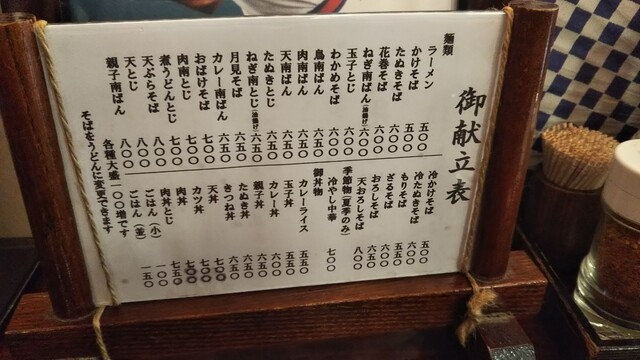 御献立表
麺類
ラーメン 五〇〇
かけそば 五〇〇
たぬきそば 五五〇
花巻そば 六〇〇
ねぎ南ばん(油揚げ) 六〇〇
玉子とじ 六〇〇
わかめそば 六〇〇
鳥南ばん 六五〇
肉南ばん 六五〇
天南ばん 六五〇
たぬきとじ 六五〇
ねぎ南とじ(油揚げ) 六五〇
月見そば 六五〇
カレー南ばん 六五〇
おばけそば 七〇〇
肉南とじ 七〇〇
煮うどんとじ 七〇〇
天ぷらそば 八〇〇
天とじ 八〇〇
親子南ばん 八〇〇
冷かけそば 五〇〇
冷たぬきそば 六〇〇
もりそば 五五〇
ざるそば 六〇〇
おろしそば 六五〇
天おろしそば 八〇〇
季節物(夏季のみ)
冷やし中華 七〇〇
御丼物
カレーライス 五五〇
玉子丼 五五〇
カレー丼 六〇〇
親子丼 六五〇
たぬき丼 六五〇
きつね丼 六五〇
天丼 七〇〇
カツ丼 七〇〇
肉丼 七〇〇
肉丼とじ 七五〇
ごはん(小) 一〇〇
ごはん(並) 一五〇
各種大盛一〇〇増です
そばをうどんに変更できます